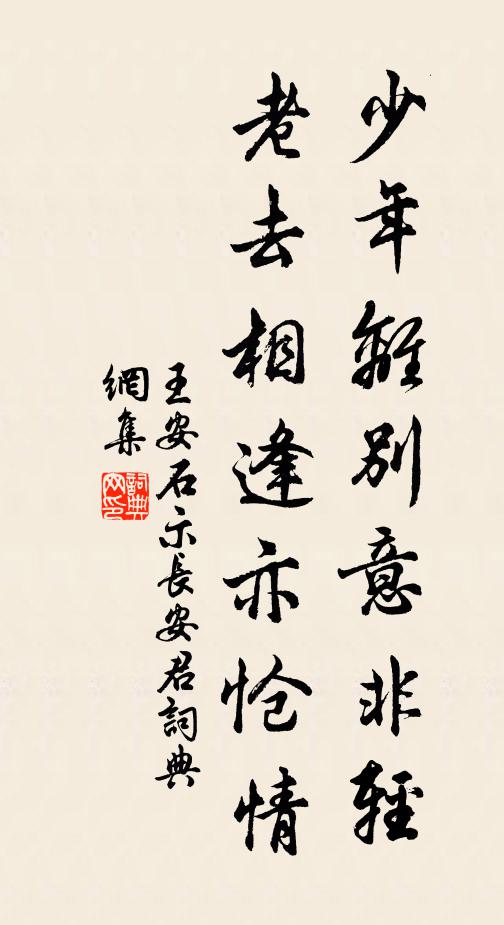 少年離別意非輕
老去相逢亦怆情
王安石示長安君詞典
網集
詞典
网印